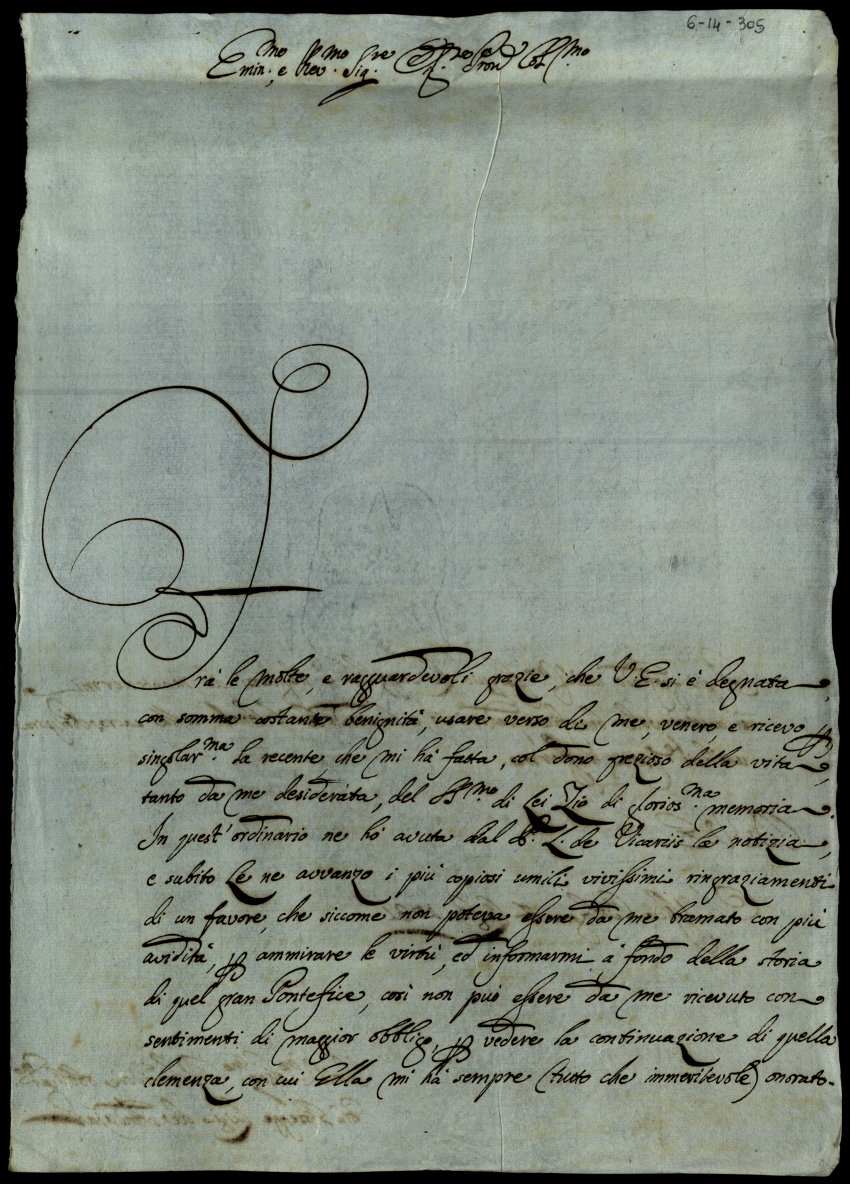 6-14-305
Emin.mo e Rev.mo Sig.re Sig.re e Pron Col.mo
Frà le molte, e ragguardevoli grazie, che V. E. si è degnata,
con somma costante benignità, usare verso di me, venero, e ricevo p
singolar.ma la recente, che mi hà fatta, col dono grezioso della vita,
tanto da me desiderata, del SS.mo di Lei Zio di glorios.ma memoria.
In quest'ordinario ne hò avuta dal P. L. de Vicariis la notizia,
e subito Le ne avvanzo i più copiosi umili vivissimi ringraziamenti
di un favore, che siccome non poteva essere da me bramato con più
avidità, p ammirare le virtù, ed informarmi à fondo della storia
di quel gran Pontefice, così non può essere da me ricevuto con
sentimenti di maggior obbligo, p vedere la continuazione di quella
clemenza, con cui Ella mi hà sempre (tutto che immeritevole) onorato.